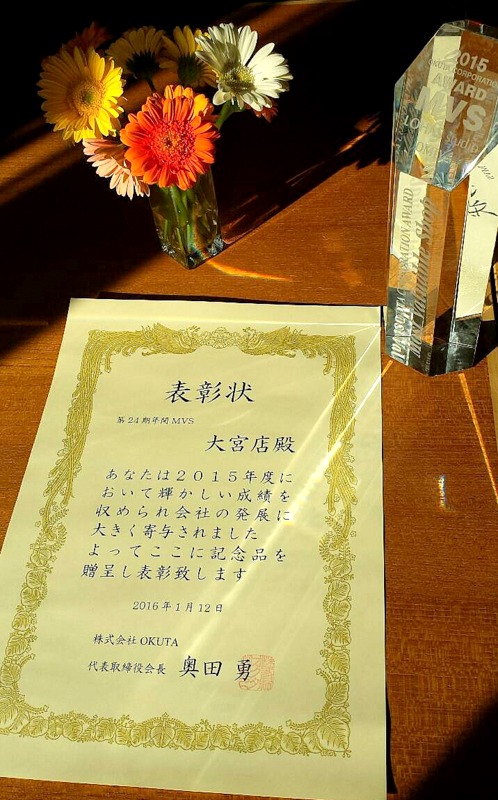 2015
OKUTA CORPORATION
AWARD
MVS
表彰状
第24期年間MVS
大宮店殿
あなたは2015年度に
おいて輝かしい成績を
収められ会社の発展に
大きく寄与されました
よってここに記念品を
贈呈し表彰致します
2016年1月12日
株式会社OKUTA
代表取締役会長 奥田 勇